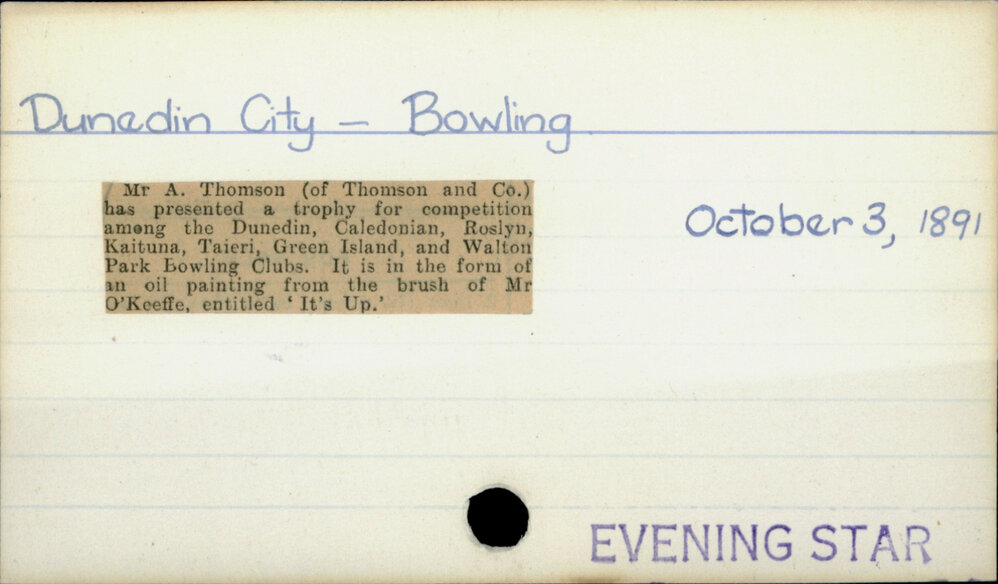 Dunedin City - Bowling
Mr A. Thomson (of Thomson and Co.)
has presented a trophy for competition
among the Dunedin, Caledonian, Roslyn,
Kaituna, Taieri, Green Island, and Walton
Park Bowling Clubs. It is in the form of
an oil painting from the brush of Mr
O'Keeffe, entitled ‘It's Up.’
October 3, 1891
EVENING STAR